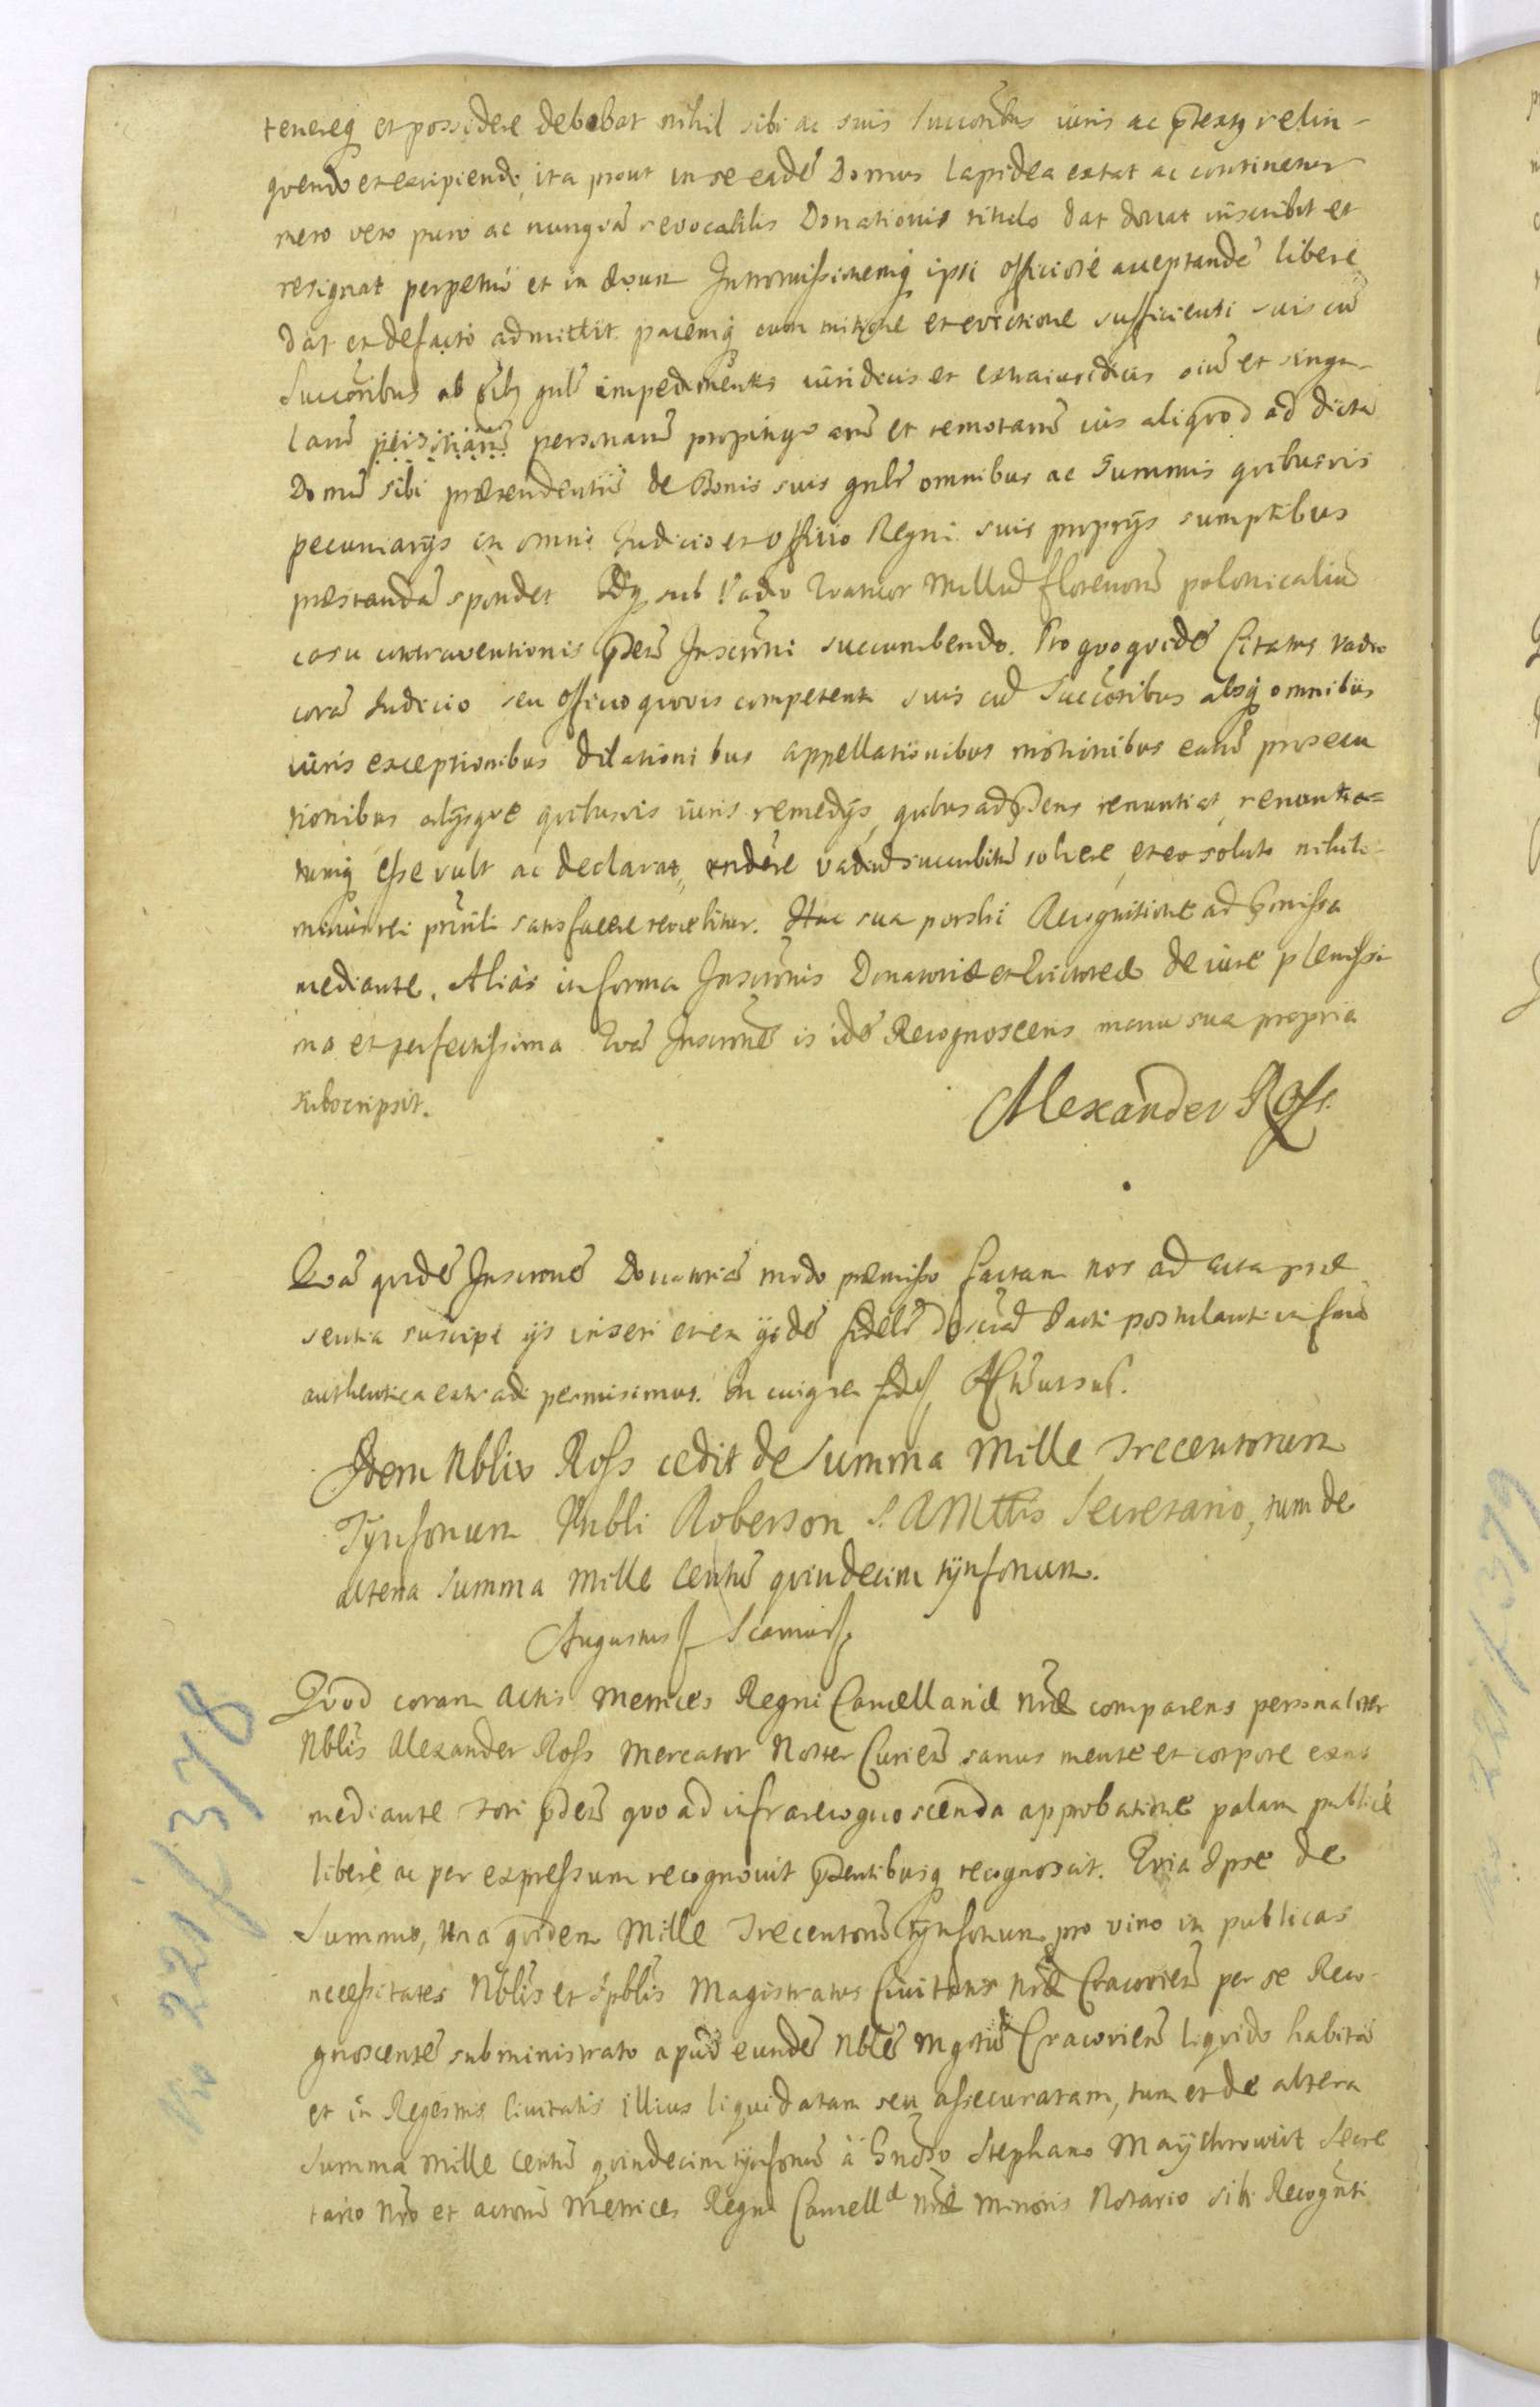 tenereq et possidere debebat nihil sibi ac suis Succoribus iuris ac ptextq relin-
quendo et excipiendo, ita prout in se eadē Domus lapidea extat ac continetur
mero vero puro ac nunquā revocabilis Donationis titulo dat donat inscribit et
resignat perpetuo et in Intromissionemq ipsi officiose acceptandē libere
dat et defacto admittit. pacemq cum et evictione sufficienti suis cū
Succoribus ab gnlr impedimentis iuridicis et extraiuridicis oiū et singu-
larū personarū personarū propinquarū et remotarū ius aliquod ad dictā
Domū sibi prætendentiū de Bonis suis gnlr omnibus ac Summis quibusvis
pecuniarijs in omni Judicio et officio Regni suis proprijs sumptibus
præstandā spondet Idq sub Vadio Quatuor Milliū florenorū polonicaliū
casu contraventionis pntis Inscrōni succumbendo. Pro quo quidē Citatus vadio
corā Judicio seu officio quovis competenti suis cū Succoribus absq omnibus
iuris exceptionibus dilationibus appellationibus motionibus earū prosecu
tionibus alijsque quibusvis iuris remedijs, quibus ad pntens renuntiat, renuntia=
tumq esse vult ac declarat, vadiū succubitū solvere, et eo soluto nihilo
minus rei prnlī satisfacere tenebitur. Hac sua psonli Recognitione ad pmissa
mediante. Alias in forma Inscronis Donatoriæ et Evictoreæ de iure plenissi
ma et perfectissima. Quā Inscronē is idē Recognoscens manu sua propria
subscripsit.
Alexander Ross
Quā quidē Inscronē Donatoriā modo præmisso factam nos ad acta præ
sentia suscipi ijs inseri et ex ijsdē fidelr descriptā parti postulanti in formā
authentica extradi permisimus. In cuius rei fidē ut sup.
Idem Nblis Ross cedit de Summa Mille Trecentorum
Tynforum Nobli Roberson S. R. Mttis Secretario, tum de
altera Summa Mille Centū quindecim tynforum.
Augustus Scamus
Quod coram Actis Metrices Regni Cancellariæ Nræ comparens personaliter
Nblis Alexander Ross Mercator Noster Curien sanus mente et corpore exns
mediante fori quo ad infrarecognoscenda approbatione palam publice
libere ac per expressum recognovit pntentibusq recognoscit. Quia Ipse de
Summis, una quidem Mille Trecentorū tynforum pro vino in publicas
necessitates Nblis et Spblis Magistratus Civitatis Nræ Cracovien per se Reco-
gnoscentē subministrato apud eundē Nblē Mgtū Cracovien liquido habitā
et in Regestris Civitatis illius liquidatam seu assecuratam, tum et de altera
Summa Mille Centū quindecim tynforū à Gnrso Stephano Maychrowicz Secre
tario Nro et actorū Metrices Regni Cancell Næ Minoris Notario sibi Recognti
No 221/378